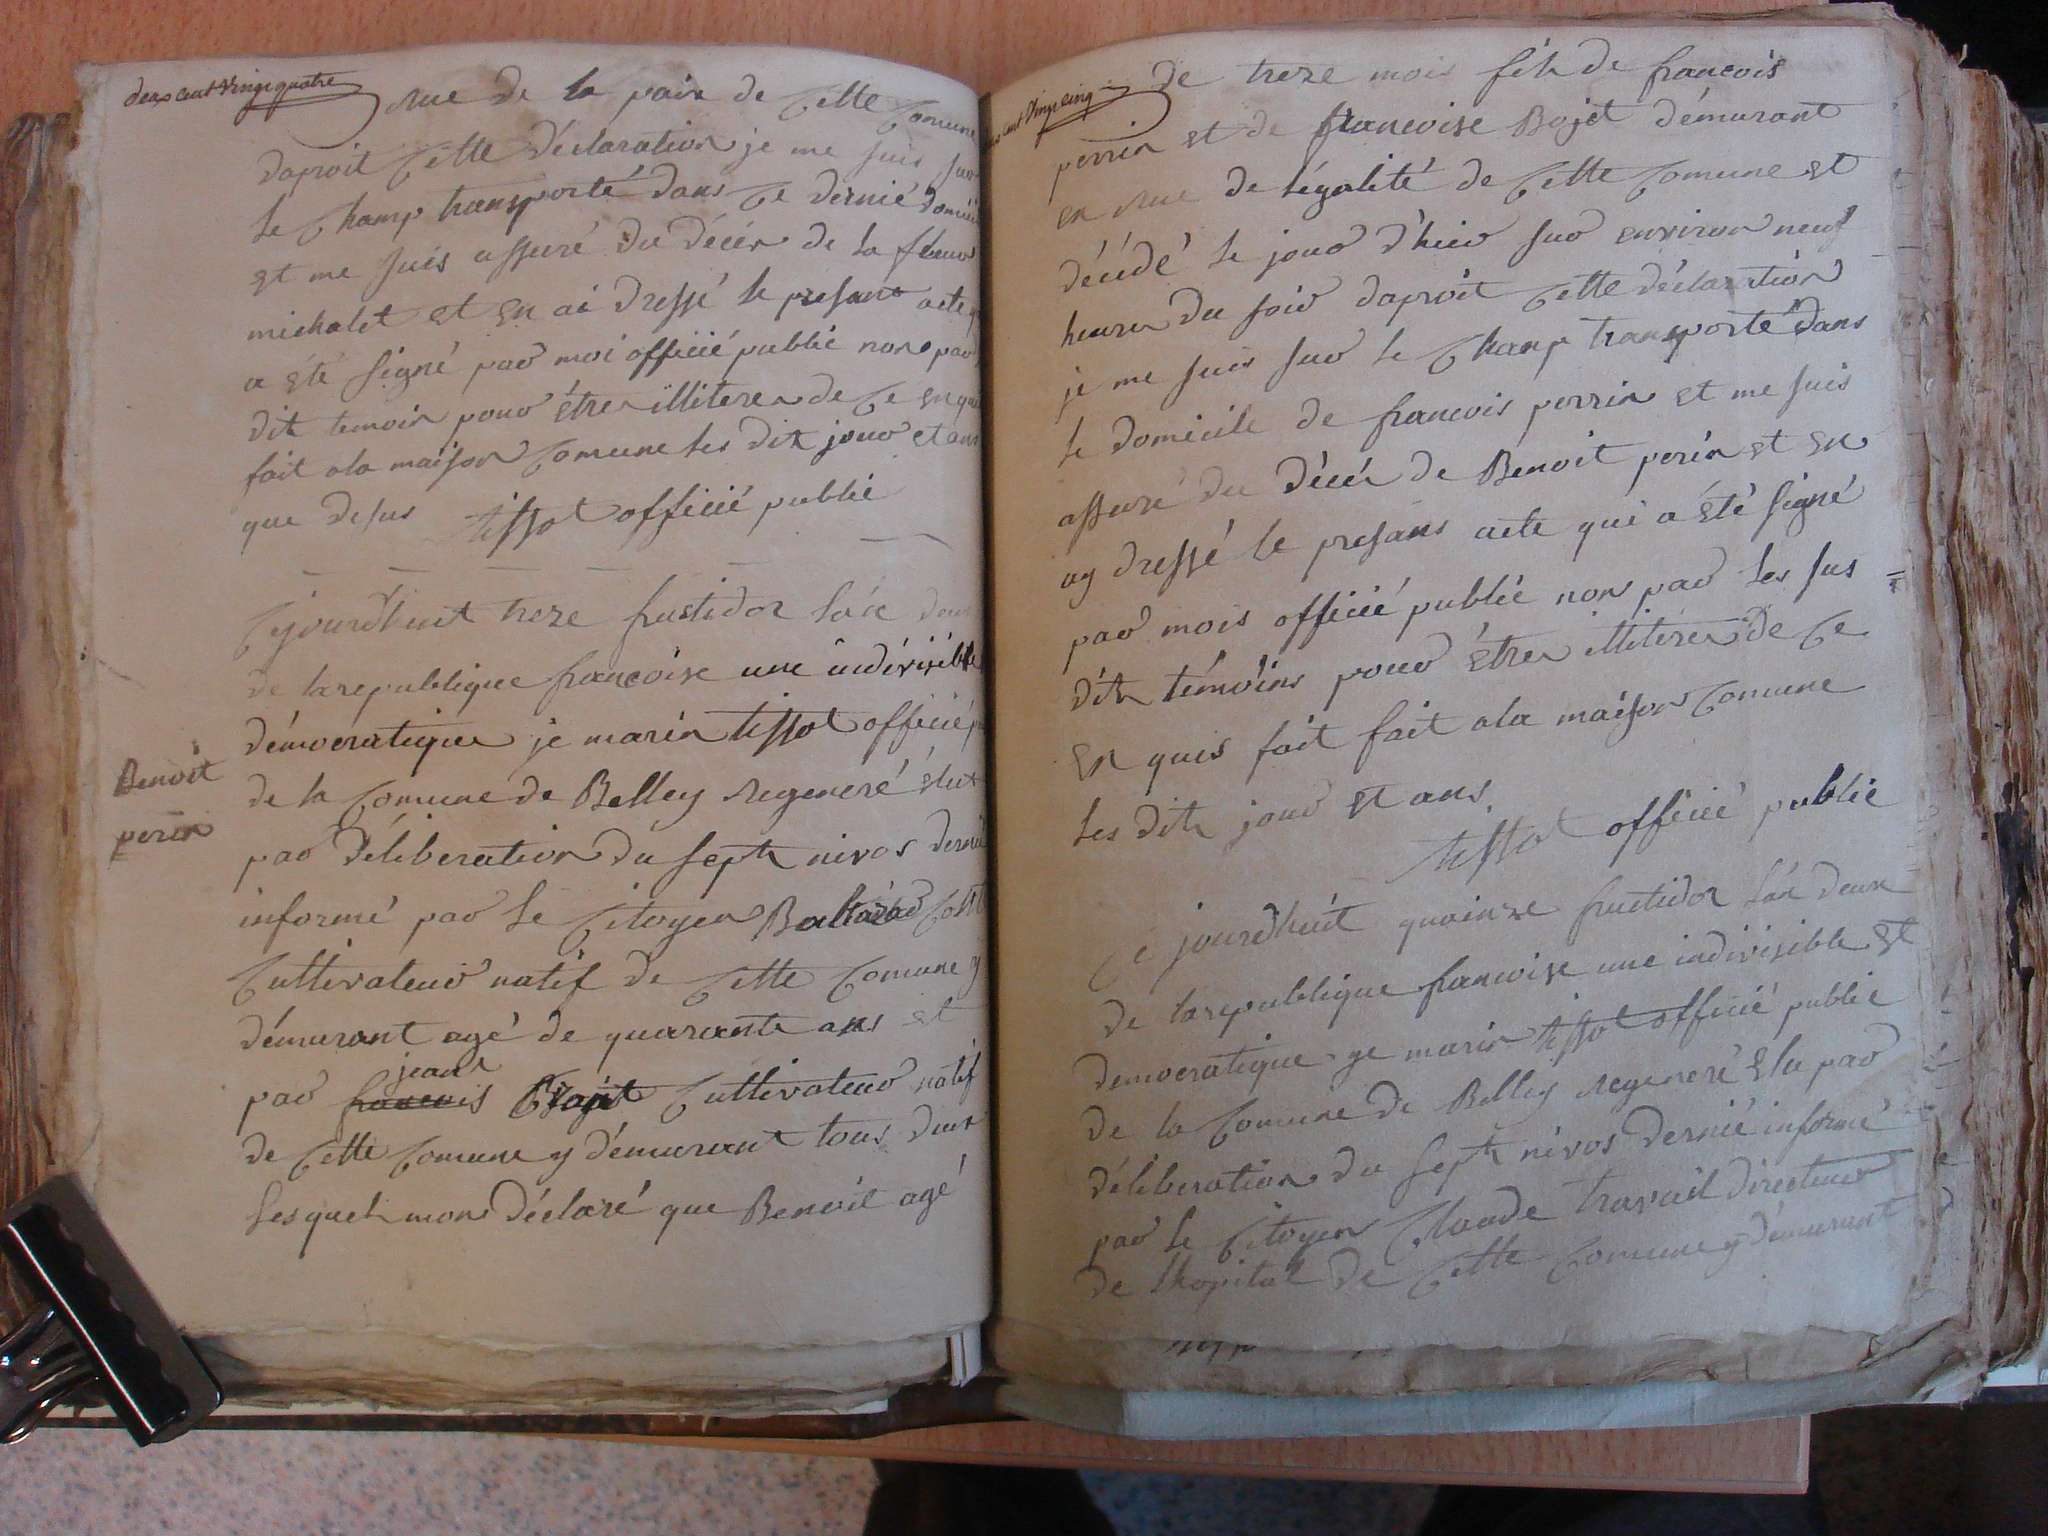 deux cent vingt quatre
rue de la paix de cette comune
daproit cette déclaration je me suis sur
le champ transporté dans ce dernié domicil
et me suis assuré du décér de la
michalet et en ai dressé le presant acte
a été signé par moi officié public non par
dits temoin pour être illiterer de ce enqui
fait ala maison comune les dit jour et ans
que desus tissot officié public
Cejourdhuit treze frustidor lan deux
de la republique françoise une indivisible
démocratique je marin tissot officié
de la comune de Belley regeneré élut
par déliberation du sept nivos dernié
Benoit
perin
informé par le citoyen Baltazar
cultivateur natif de cette comune y
démurant agé de quarante ans et
jean
par francois Bojet cultivateur natif
de cette comune y démurant tous deux
lesquels mon déclaré que Benoit agé
deux cent vingt cinq
de treze mois fils de francois
perrin et de francoise Bojet démurant
en rue de légalité de cette comune et
décédé le jour d'hier sur environ neuf
heures du soir daproit cette déclaration
je me suis sur le champ transporté dans
le domicile de francois perrin et me suis
assuré du décér de Benoit perin et en
ay dressé le presans acte qui a été signé
par mois officié public non par les sus
dits témoins pour être illitérer de ce
en quis fait fait ala maison comune
les dits jour et ans.
tissot officié public
Ce jourdhuit quainze fructidor lan deux
de la republique francoise une indivisible et
democratique ye marin tissot officié public
de la comune de Belley regeneré élu par
déliberation du sept nivos dernié informé
par le citoyen Claude travail directeur
de lhopital de cette comune y démurant